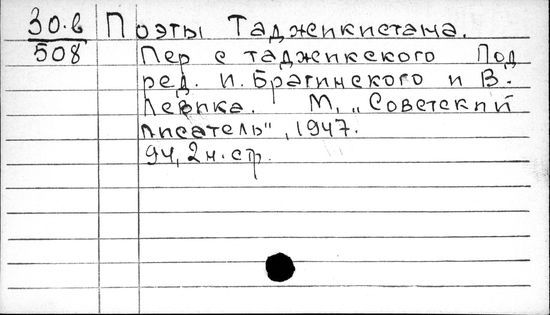 30.в Поэты Таджикистана.
508 Пер с таджикского Под
ред. И. Брагинского и В.
Левика. М, „Советский
писатель", 1947.
94, 2 н. стр.